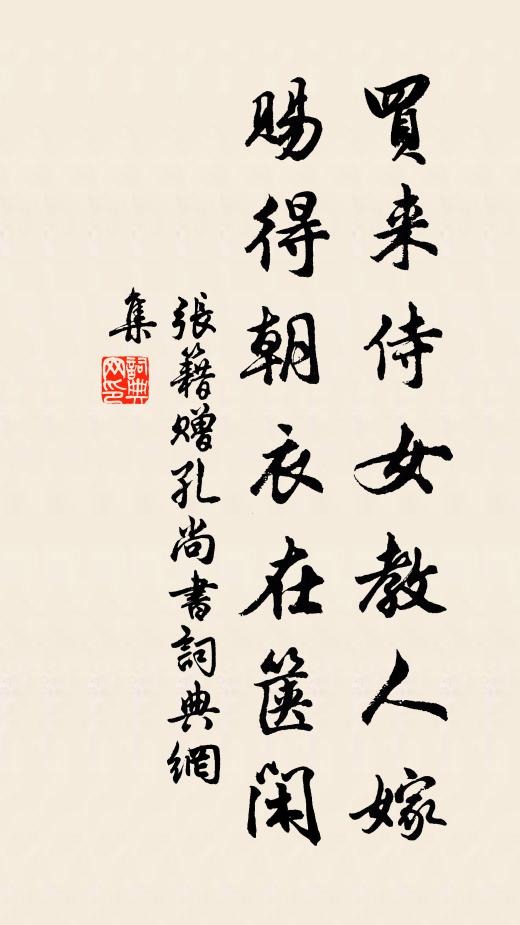 買来侍女教人嫁
賜得朝衣在篋闲
張籍贈孔尚書詞典網
集
詞典
网印